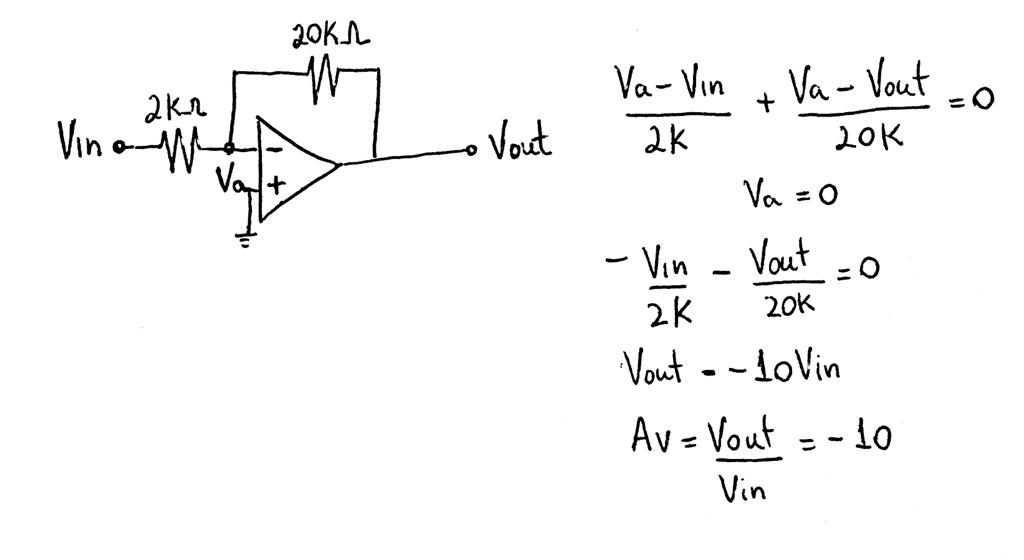 20KΩ
2KΩ
Vin
-
Va
+
Vout
Va - Vin / 2K + Va - Vout / 20K = 0
Va = 0
- Vin / 2K - Vout / 20K = 0
Vout = -10Vin
Av = Vout / Vin = -10